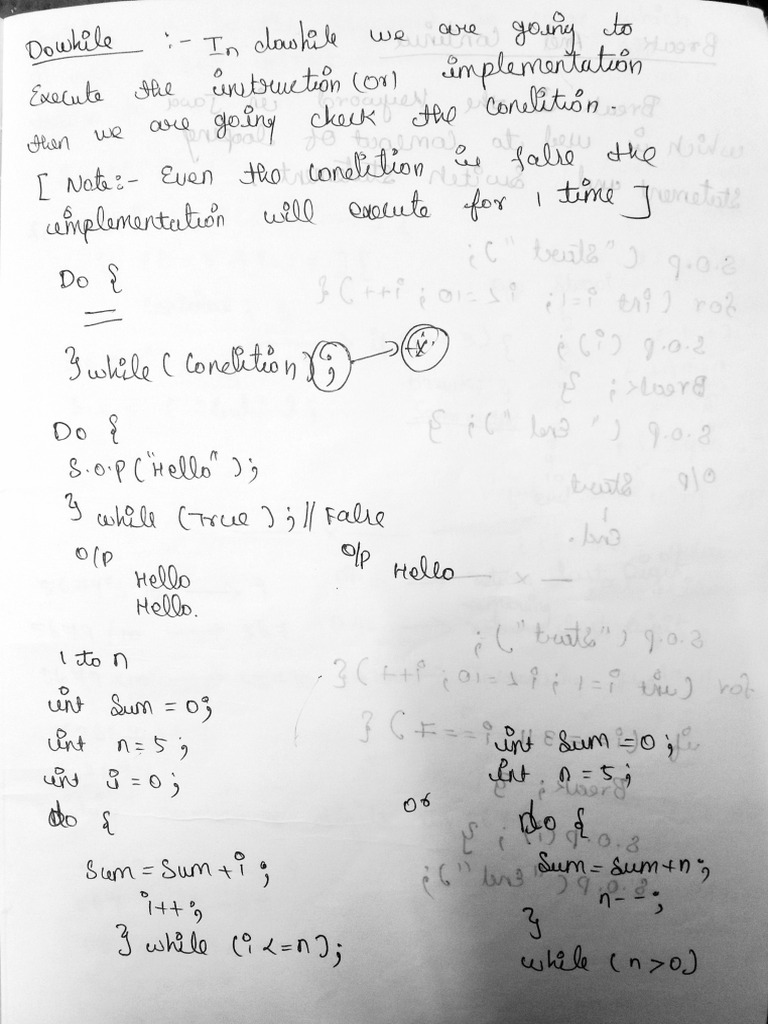 Dowhile :- In dowhile we are going to
Execute the instruction (or) implementation
then we are going check the condition.
[ Note:- Even the condition is false the
implementation will execute for 1 time ]
Do {
} while ( Condition ) ;
Do {
S.O.P ("Hello");
} while (True); // False
O/P
O/P
Hello
Hello
Hello.
1 to n
int Sum = 0;
int n = 5;
int i = 0;
do {
Sum = Sum + i;
i++;
} while (i <= n);
or
int Sum = 0;
int n = 5;
do {
Sum = Sum + n;
n--;
}
while (n > 0)